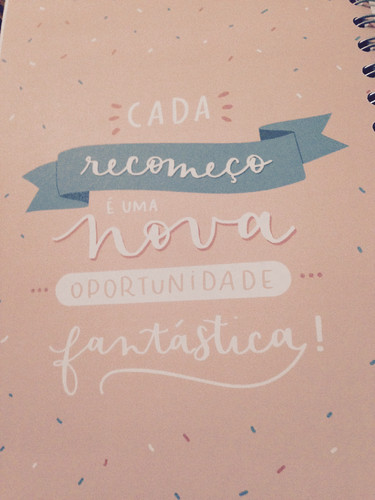 CADA
recomeço
É UMA
nova
OPORTUNIDADE
fantástica!